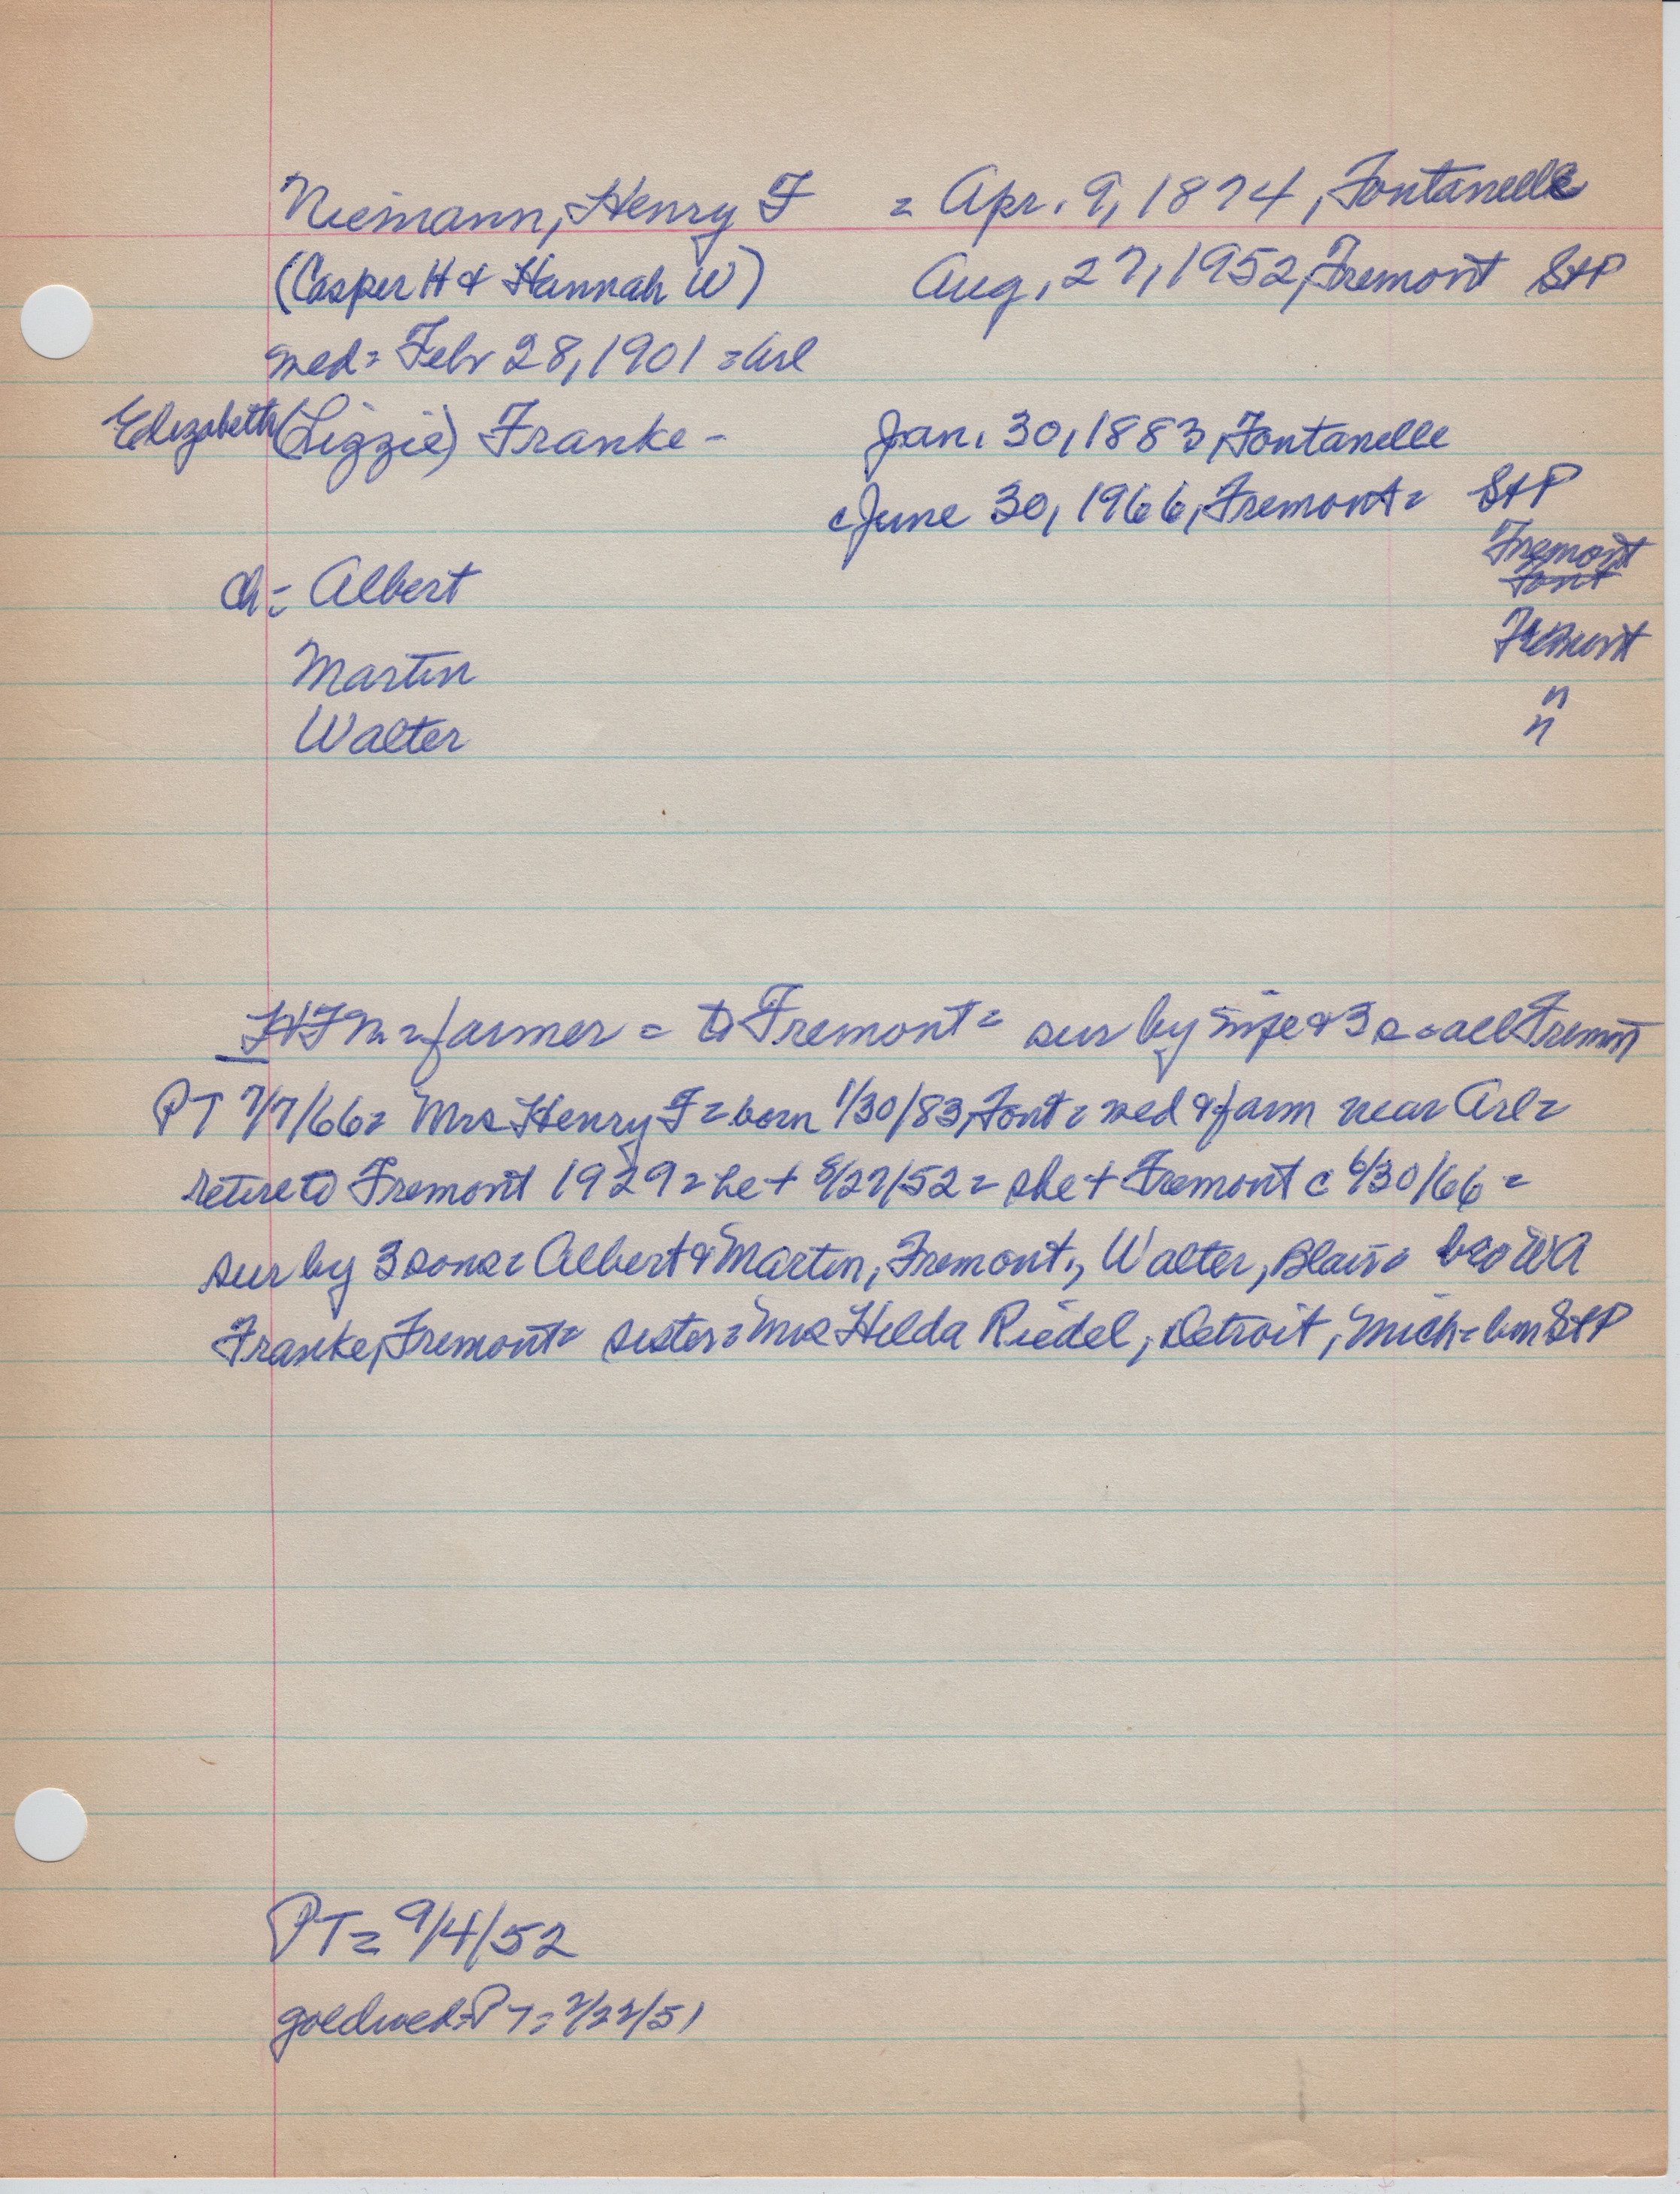 Niemann, Henry F = Apr. 9, 1874, Fontanelle
(Casper H & Hannah W) Aug, 27, 1952, Fremont StP
wed = Febr 28, 1901 = Arl
Elizabeth (Lizzie) Franke - Jan. 30, 1883, Fontanelle
c June 30, 1966, Fremont = StP
Fremont
ch = Albert Font
Fremont
Martin "
Walter "
HFN = farmer = to Fremont = sur by wife & 3 s = all Fremont
PT 7/7/66 = Mrs Henry F = born 1/30/83, Font = wed & farm near Arl =
retire to Fremont 1929 = he + 8/27/52 = she + Fremont c 6/30/66 =
sur by 3 sons = Albert & Martin, Fremont, Walter, Blair = bro W A
Franke, Fremont = sister = Mrs Hilda Riedel, Detroit, Mich = bur StP
PT = 9/4/52
goldwed = PT = 2/22/51